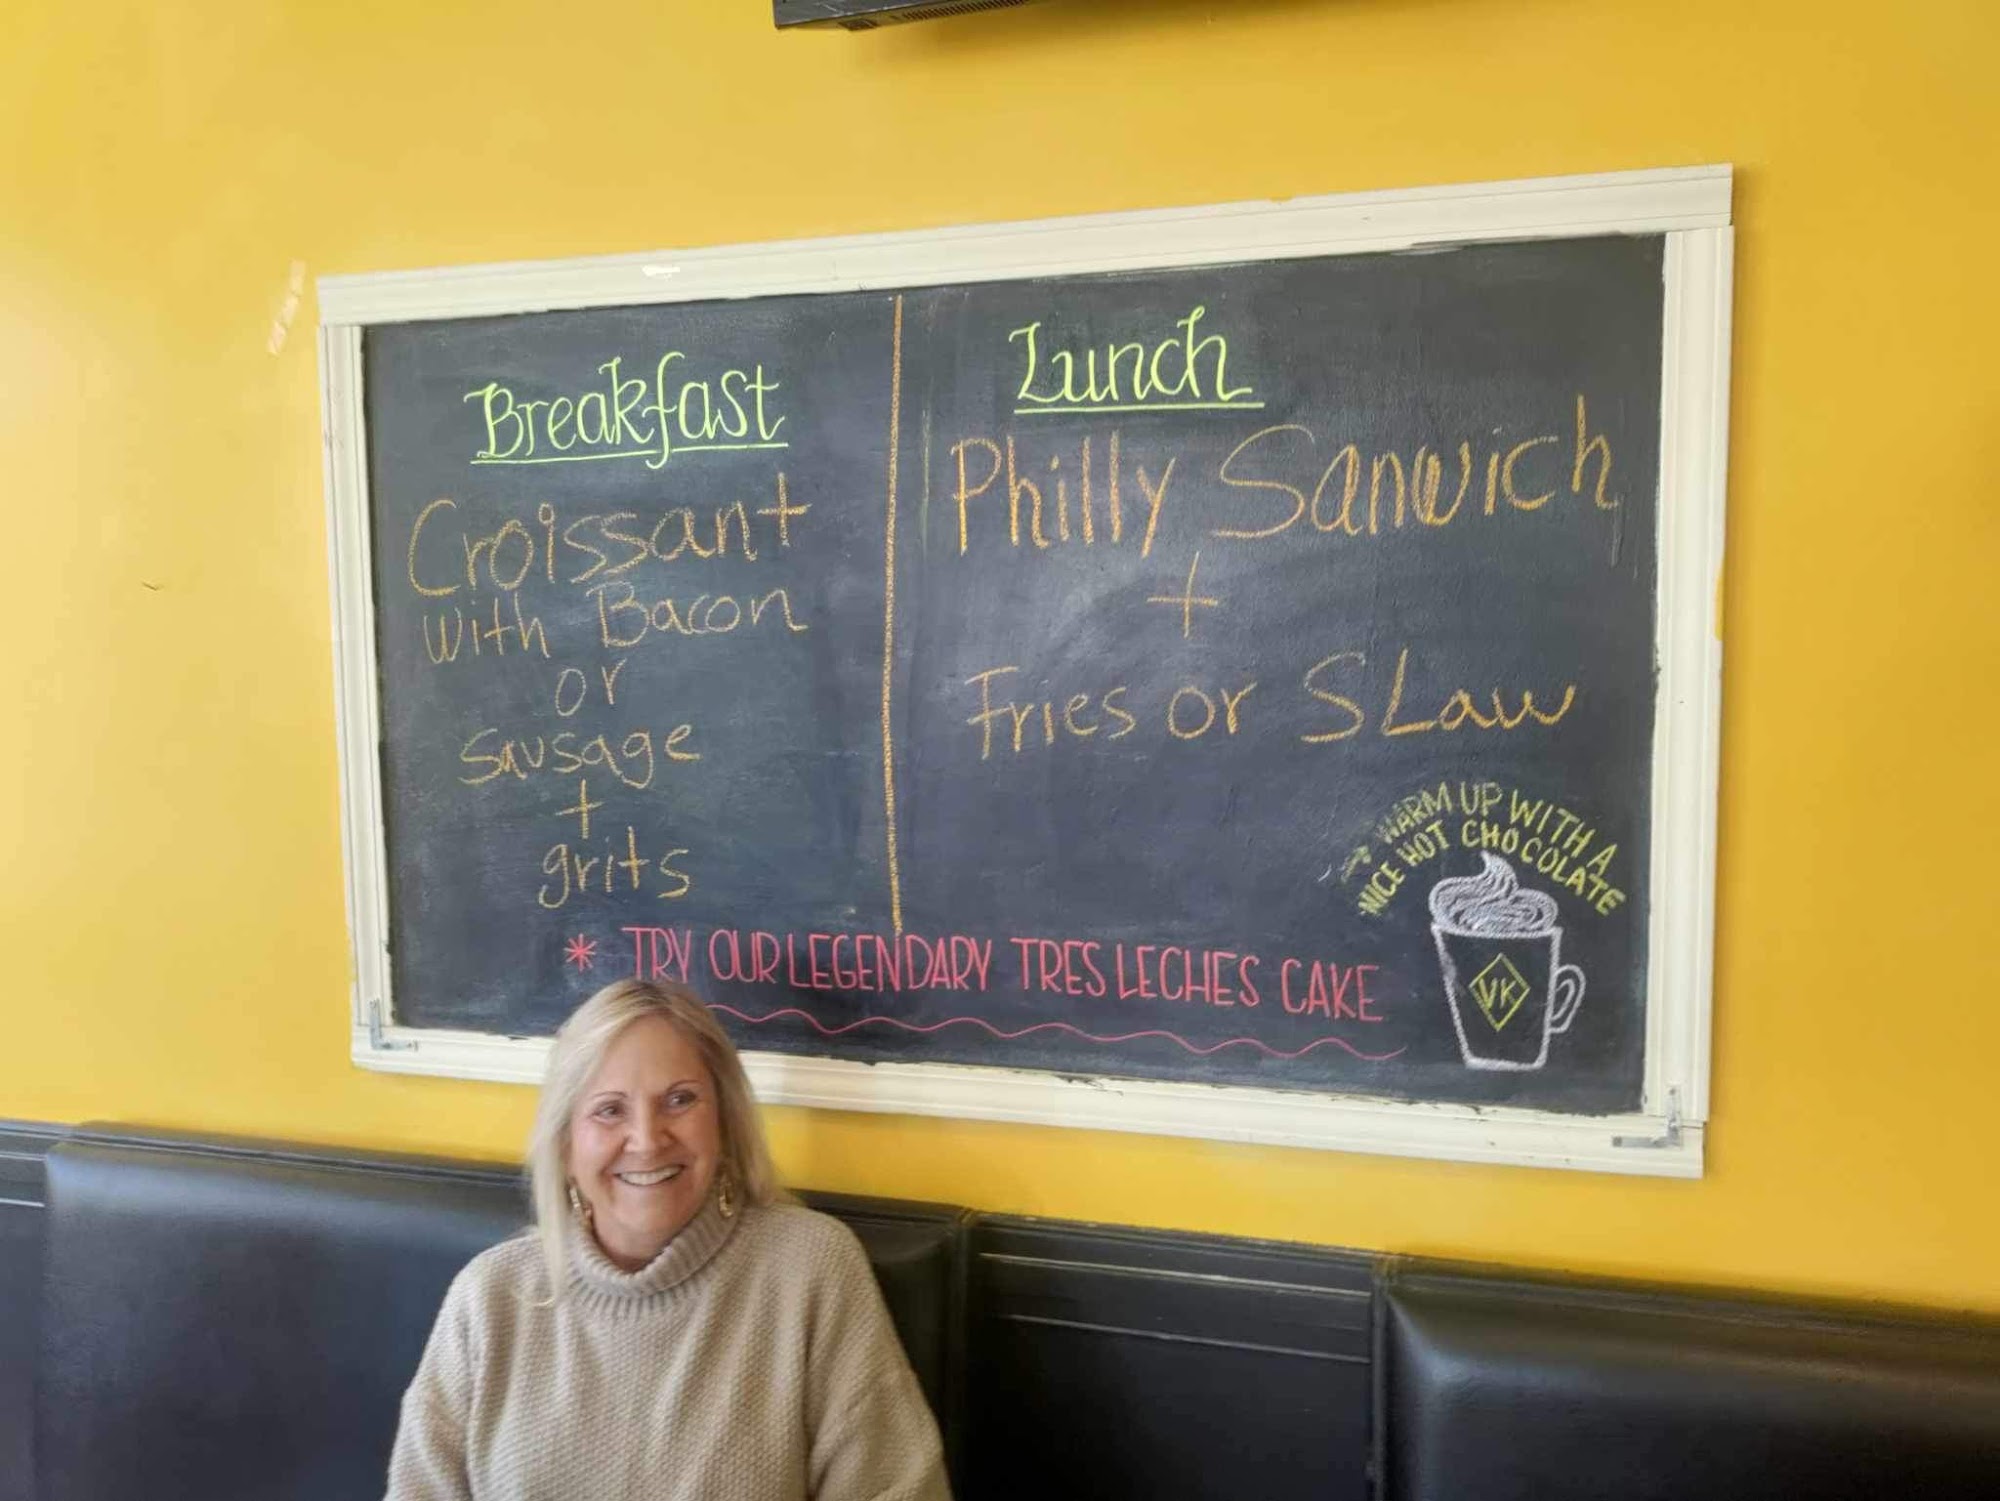 Breakfast
Croissant
with Bacon
or
Sausage
+
grits
Lunch
Philly Sanwich
+
Fries or SLaw
WARM UP WITH A
NICE HOT CHOCOLATE
VK
* TRY OUR LEGENDARY TRES LECHES CAKE